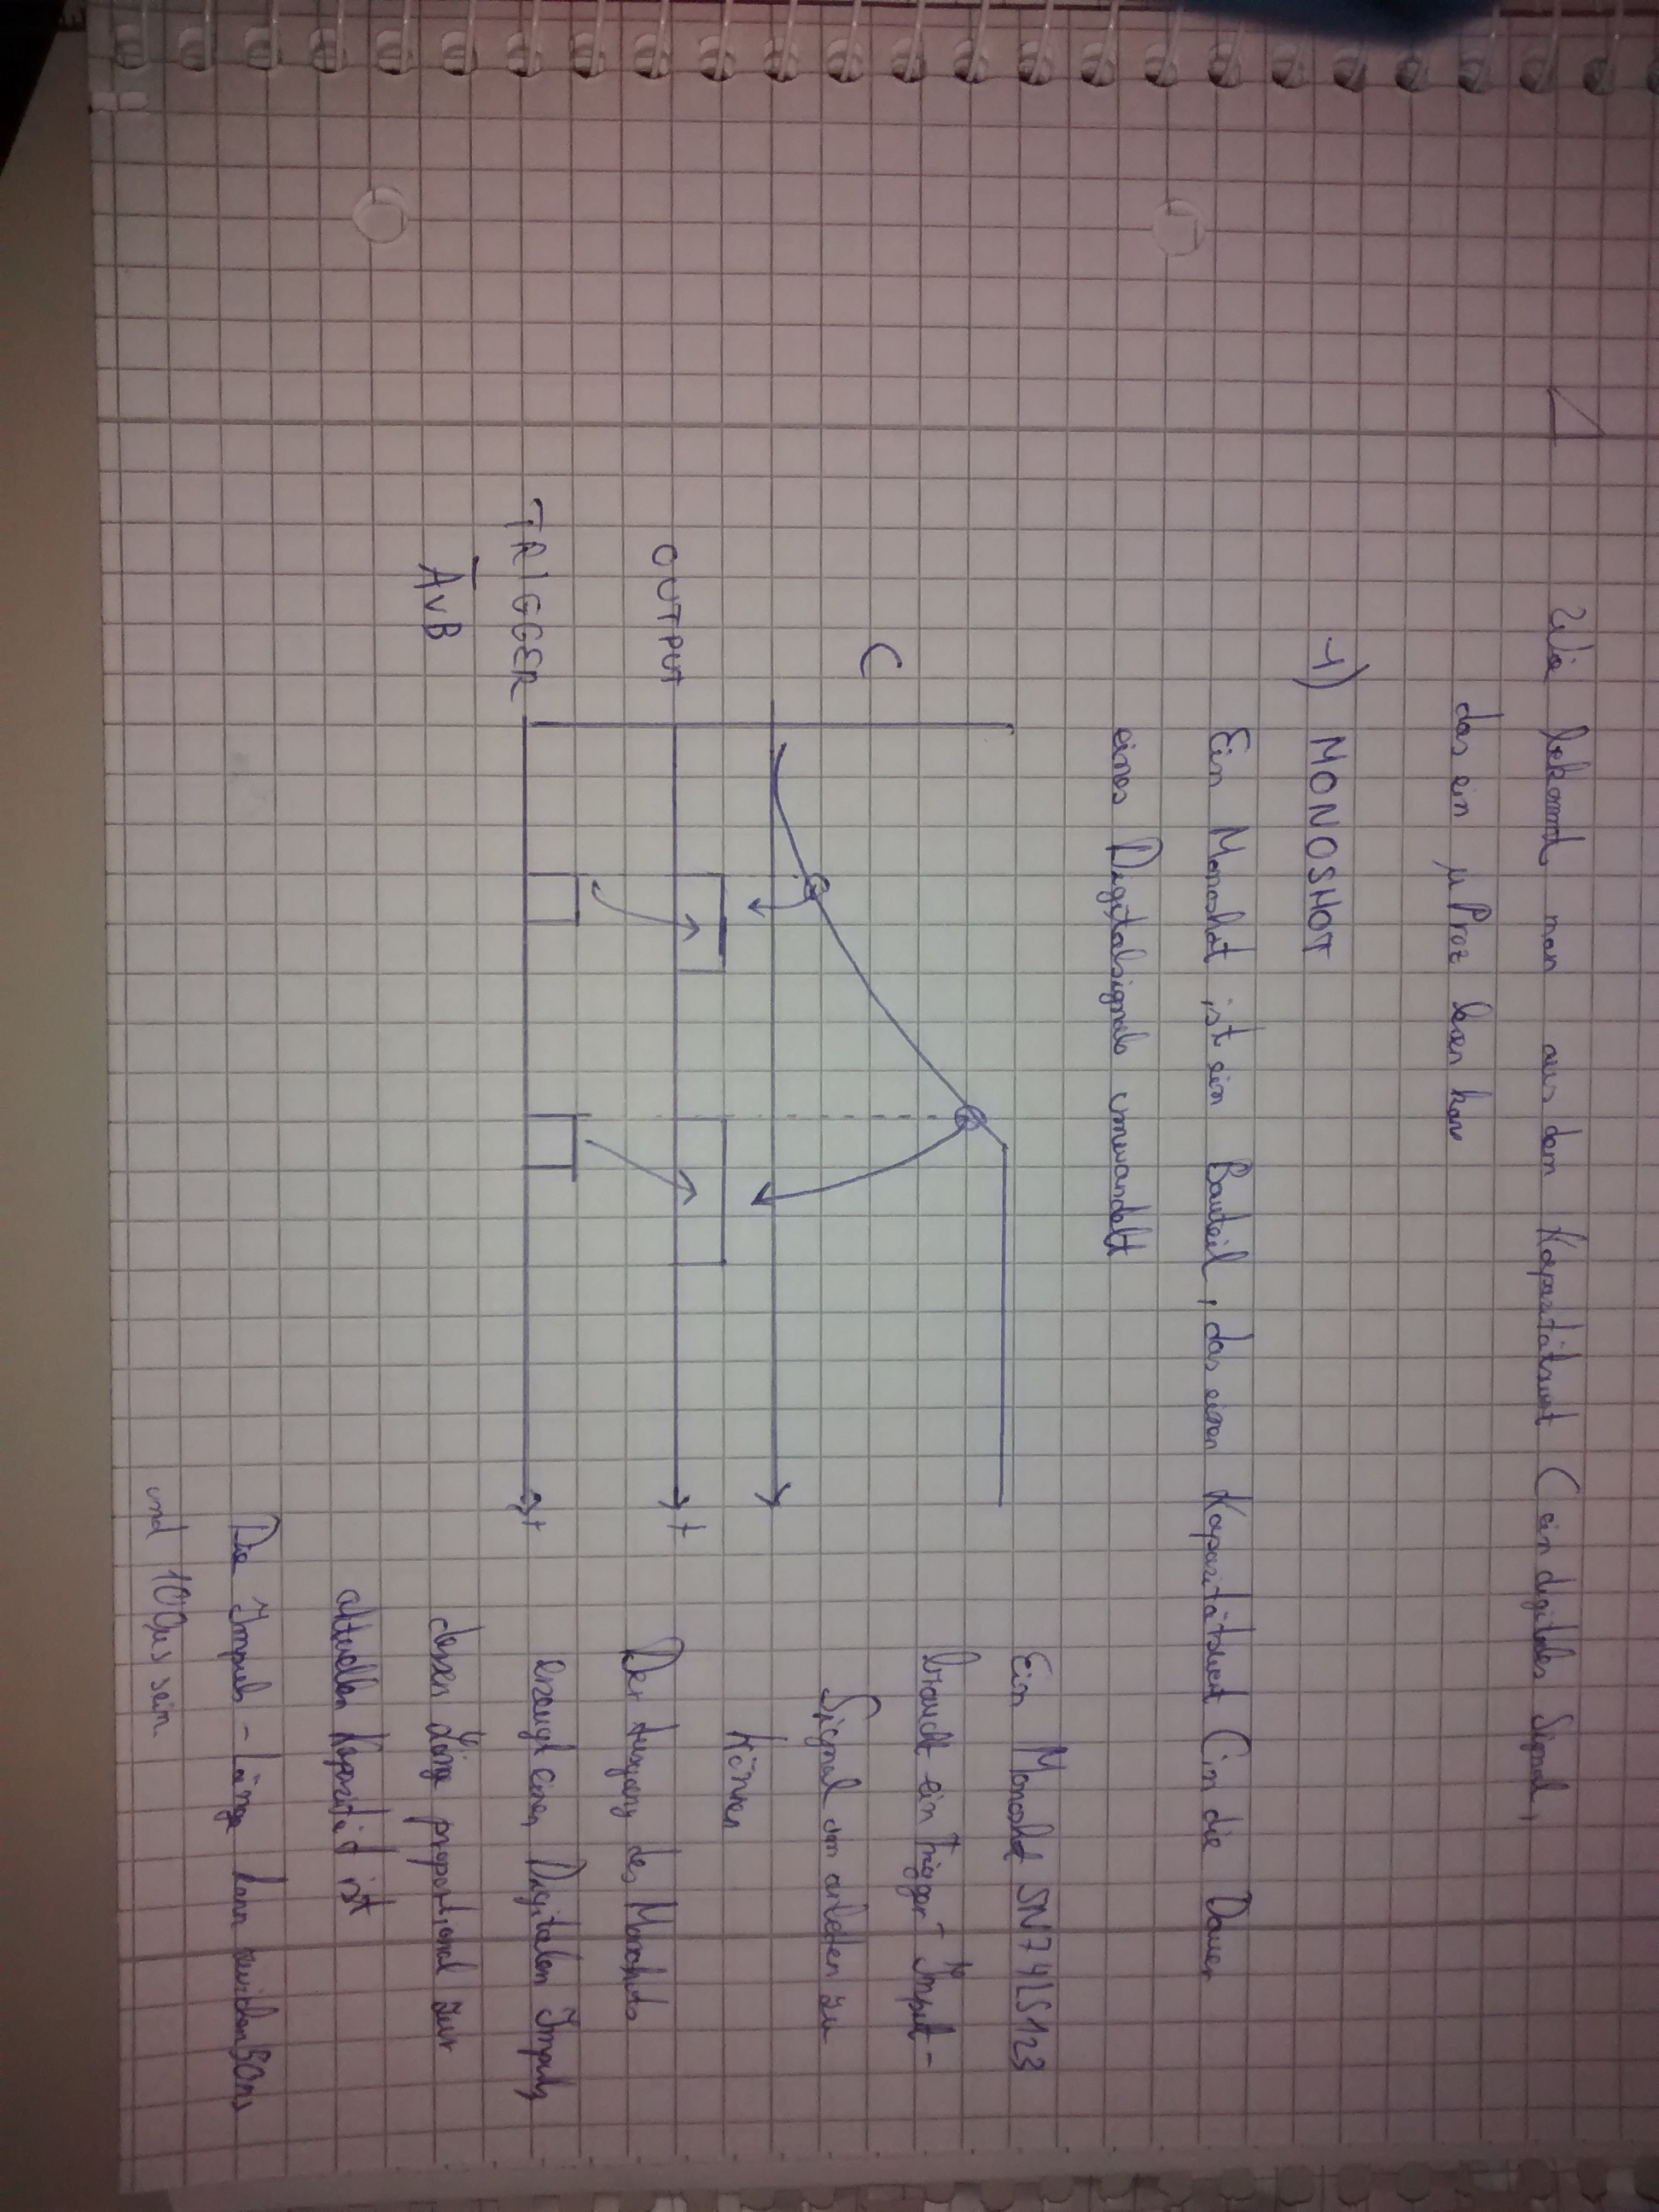 1
Wie bekommt man aus dem Kapazitätswert C ein digitales Signal,
das ein µProz lesen kann
1) MONOSHOT
Ein Monoshot ist ein Bauteil, das einen Kapazitätswert C in die Dauer
eines Digitalsignals umwandelt
C
OUTPUT
t
TRIGGER
t
A̅ ∨ B
Ein Monoshot SN74LS123
braucht ein Trigger-Input-
Signal um arbeiten zu
können
Der Ausgang des Monoshots
erzeugt einen Digitalen Impuls
dessen Länge proportional zur
aktuellen Kapazität ist
Die Impuls-Länge kann zwischen 50ns
und 100µs sein